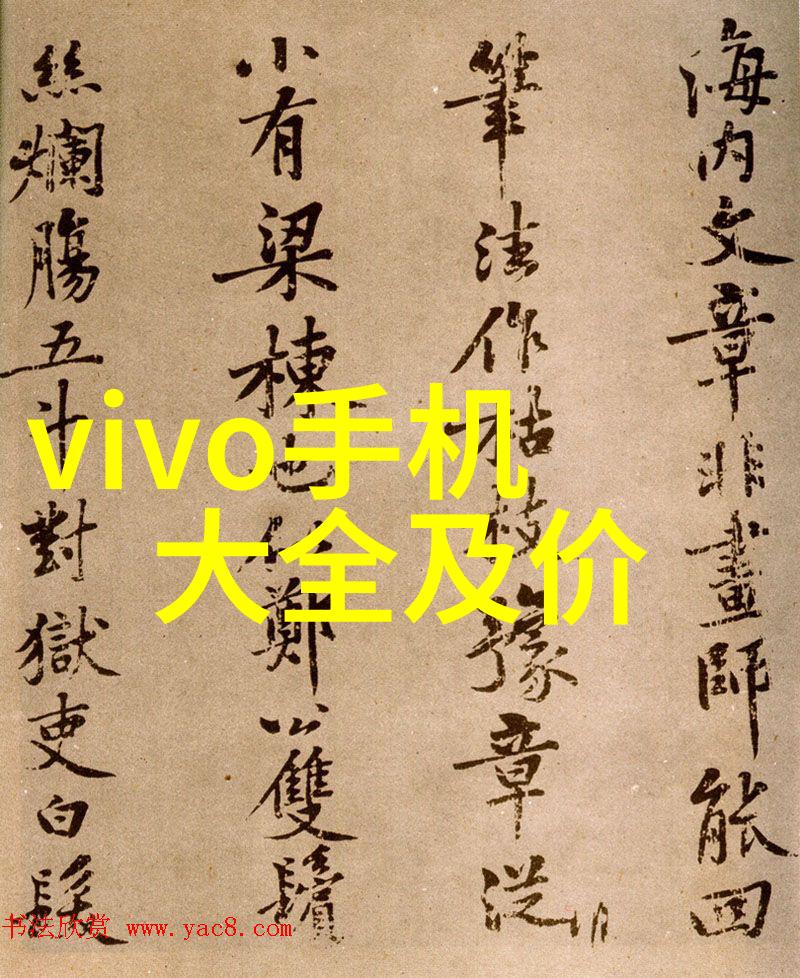 海内文章非畫師能回
筆法作枯枝豫章從
小有梁棟也似鄭公雙鬢
絲爛腸五斗對獄吏白髮
vivo手机
大全及价
书法欣赏 www.yac8.com